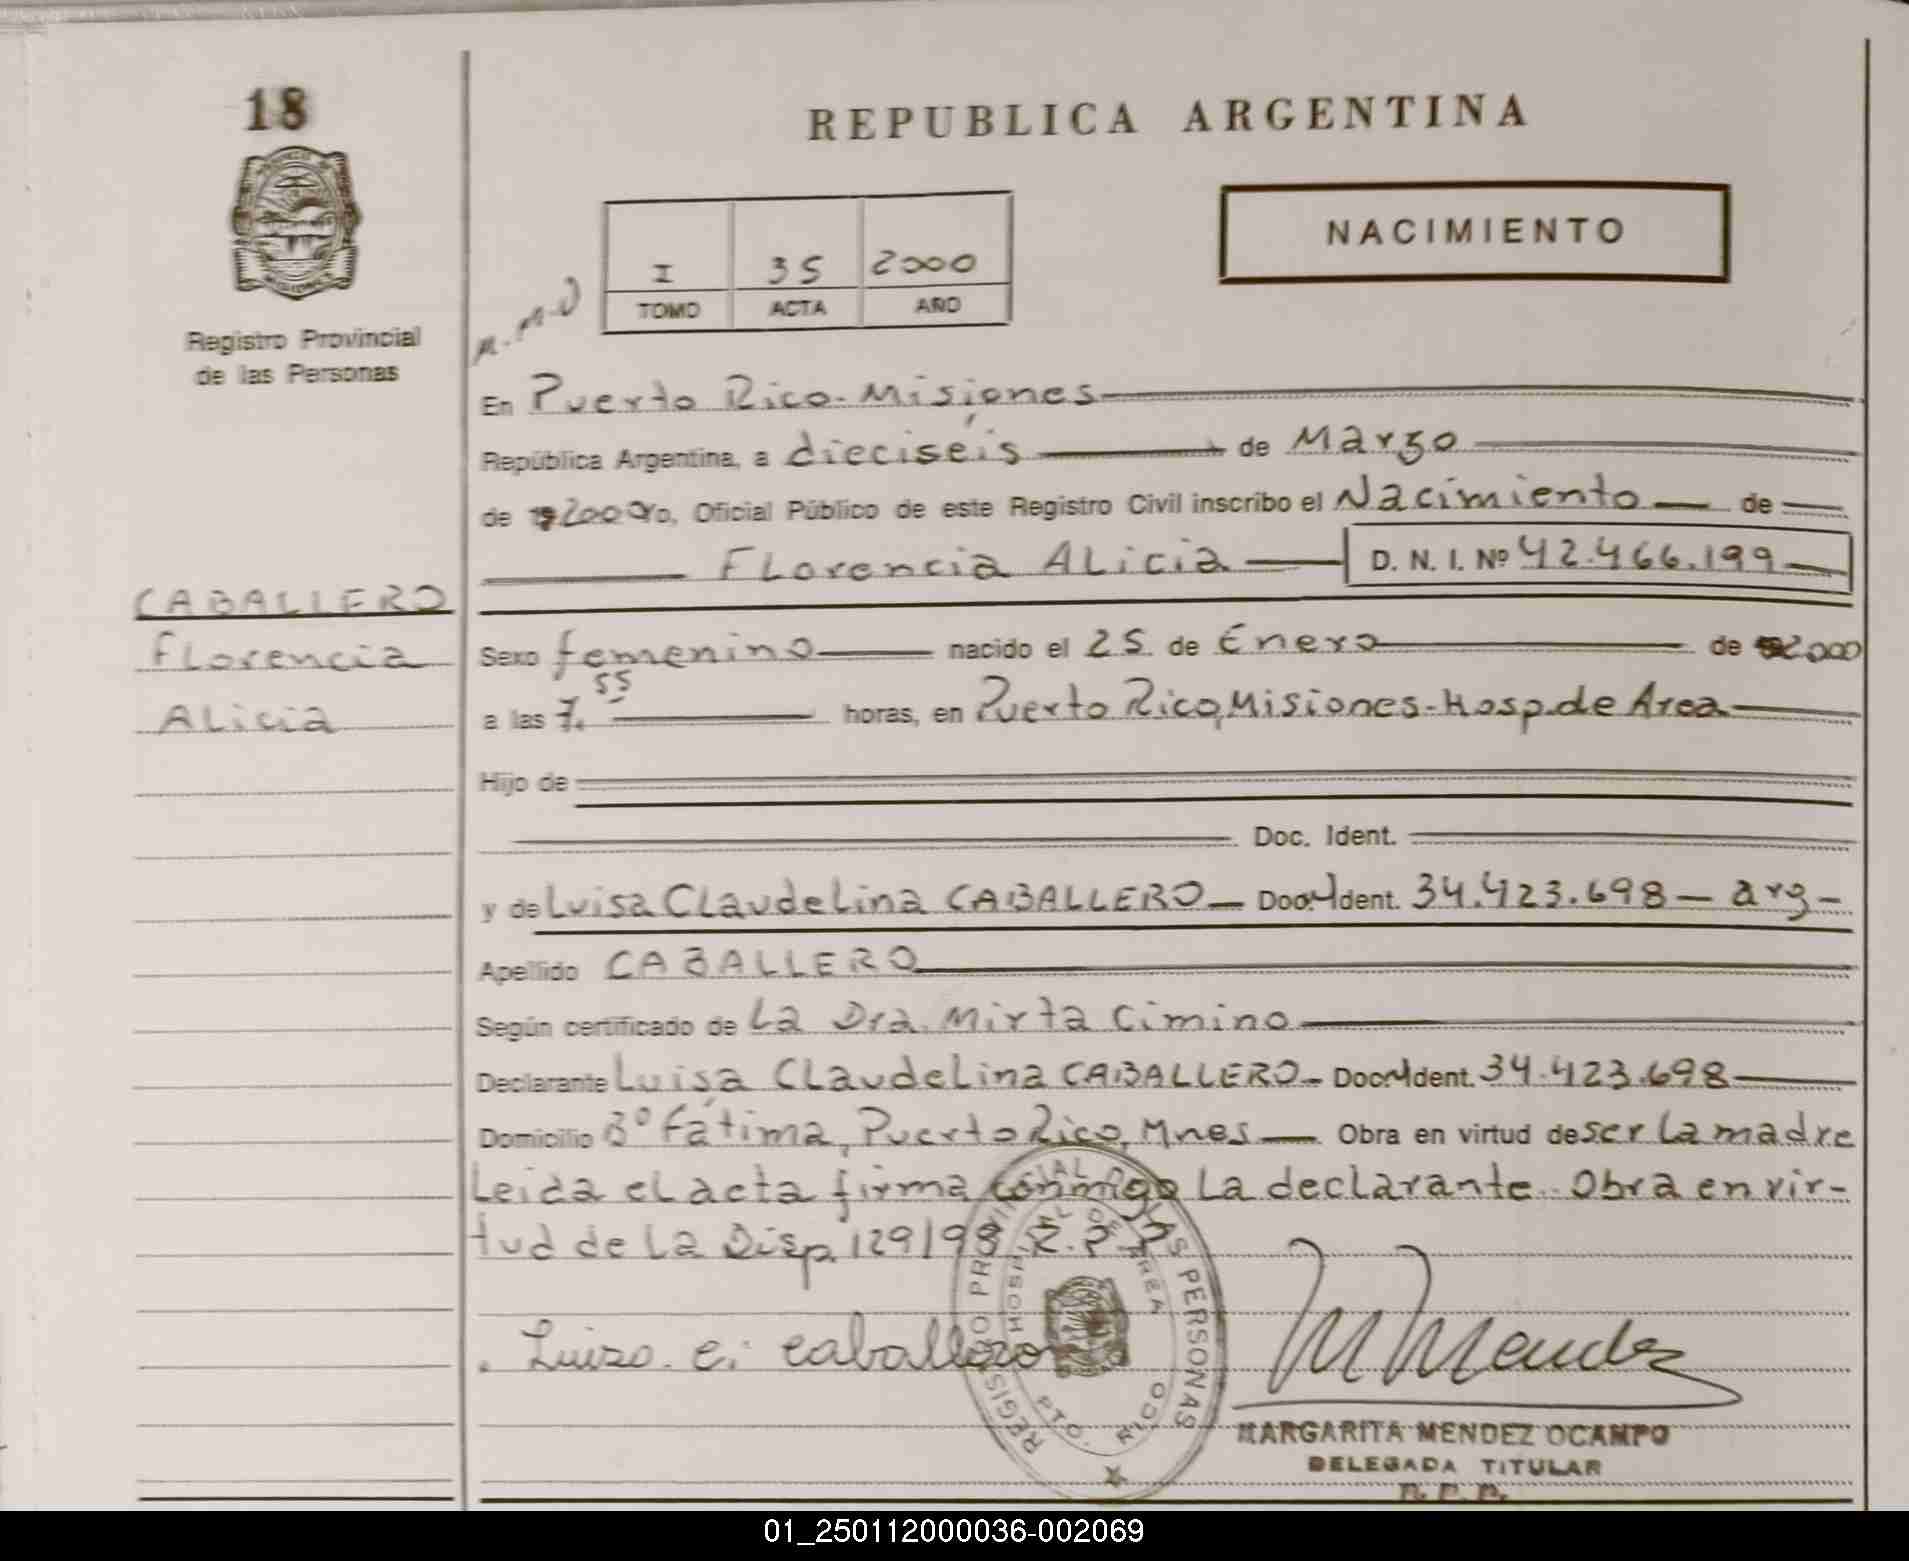 18
REPUBLICA ARGENTINA
NACIMIENTO
I 35 2000
TOMO ACTA AÑO
Registro Provincial
de las Personas
En Puerto Rico-Misiones
República Argentina, a dieciséis de Marzo
de 2000 Yo, Oficial Público de este Registro Civil inscribo el Nacimiento de
Florencia Alicia D. N. I. Nº 42.466.199
CABALLERO
Florencia
Alicia
Sexo femenino nacido el 25 de Enero de 2000
a las 7.55 horas, en Puerto Rico, Misiones-Hosp. de Area
Hijo de
Doc. Ident.
y de Luisa Claudelina CABALLERO - Doc. Ident. 34.423.698 - arg -
Apellido CABALLERO
Según certificado de La Dra. Mirta Cimino
Declarante Luisa Claudelina CABALLERO - Doc. Ident. 34.423.698
Domicilio Bº Fátima, Puerto Rico, Mnes Obra en virtud de ser la madre
Leida el acta firma conmigo la declarante. Obra en vir-
tud de la Disp. 129/98 R.P.P
Luisa. c. caballero
REGISTRO PROVINCIAL DE LAS PERSONAS
HOSPITAL DE AREA
PTO. RICO
M Mendez
MARGARITA MENDEZ OCAMPO
DELEGADA TITULAR
R. P. P.
01_250112000036-002069